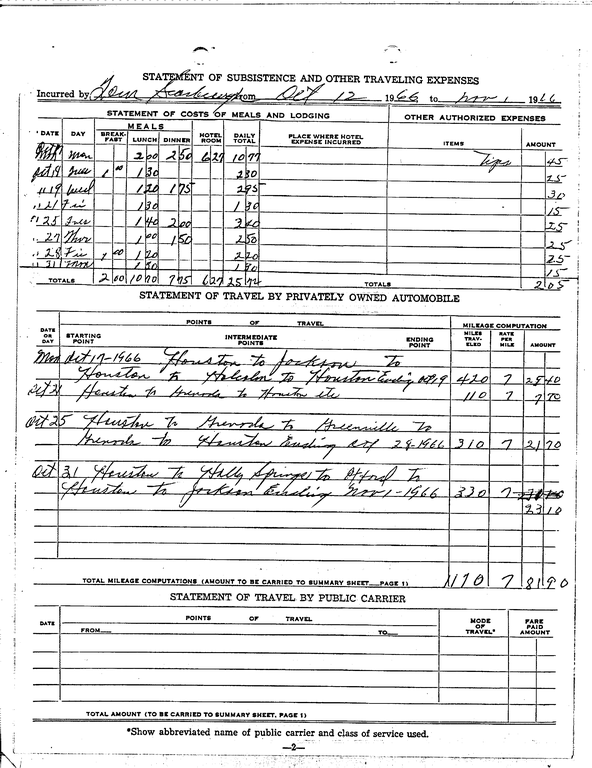 STATEMENT OF SUBSISTENCE AND OTHER TRAVELING EXPENSES
Incurred by Tom Scarbrough from Oct 12 1966 to Nov 1 1966
STATEMENT OF COSTS OF MEALS AND LODGING OTHER AUTHORIZED EXPENSES
DATE DAY MEALS BREAK-FAST LUNCH DINNER HOTEL ROOM DAILY TOTAL PLACE WHERE HOTEL EXPENSE INCURRED ITEMS AMOUNT
Oct 17 Mon 2 00 2 50 6 27 10 77 Tips 45
Oct 18 Tues 1 00 1 30 2 30 25
" 19 Wed 1 20 1 75 2 95 30
" 21 Fri 1 30 1 30 15
" 25 Tues 1 40 2 00 3 40 25
" 27 Thur 1 00 1 50 2 50 25
" 28 Fri 1 00 1 20 2 20 25
" 31 Mon 15
TOTALS 2 00 10 70 7 75 6 27 TOTALS 2 05
STATEMENT OF TRAVEL BY PRIVATELY OWNED AUTOMOBILE
DATE OR DAY POINTS OF TRAVEL STARTING POINT INTERMEDIATE POINTS ENDING POINT MILEAGE COMPUTATION MILES TRAV-ELED RATE PER MILE AMOUNT
Mon Oct 17-1966 Houston to Jackson to
Houston to to Houston Ending Oct 19 420 7 29 40
Oct 21 Houston to Grenada to Houston etc 110 7 7 70
Oct 25 Houston to Grenada to Greenville to
Grenada to Houston Ending Oct 29-1966 310 7 21 70
Oct 31 Houston to Holly Springs to Oxford to
Houston to Jackson Ending Nov 1-1966 330 7
23 10
TOTAL MILEAGE COMPUTATIONS (AMOUNT TO BE CARRIED TO SUMMARY SHEET—PAGE 1) 1170 7 81 90
STATEMENT OF TRAVEL BY PUBLIC CARRIER
DATE POINTS OF TRAVEL FROM TO MODE OF TRAVEL* FARE PAID AMOUNT
TOTAL AMOUNT (TO BE CARRIED TO SUMMARY SHEET, PAGE 1)
*Show abbreviated name of public carrier and class of service used.
—2—